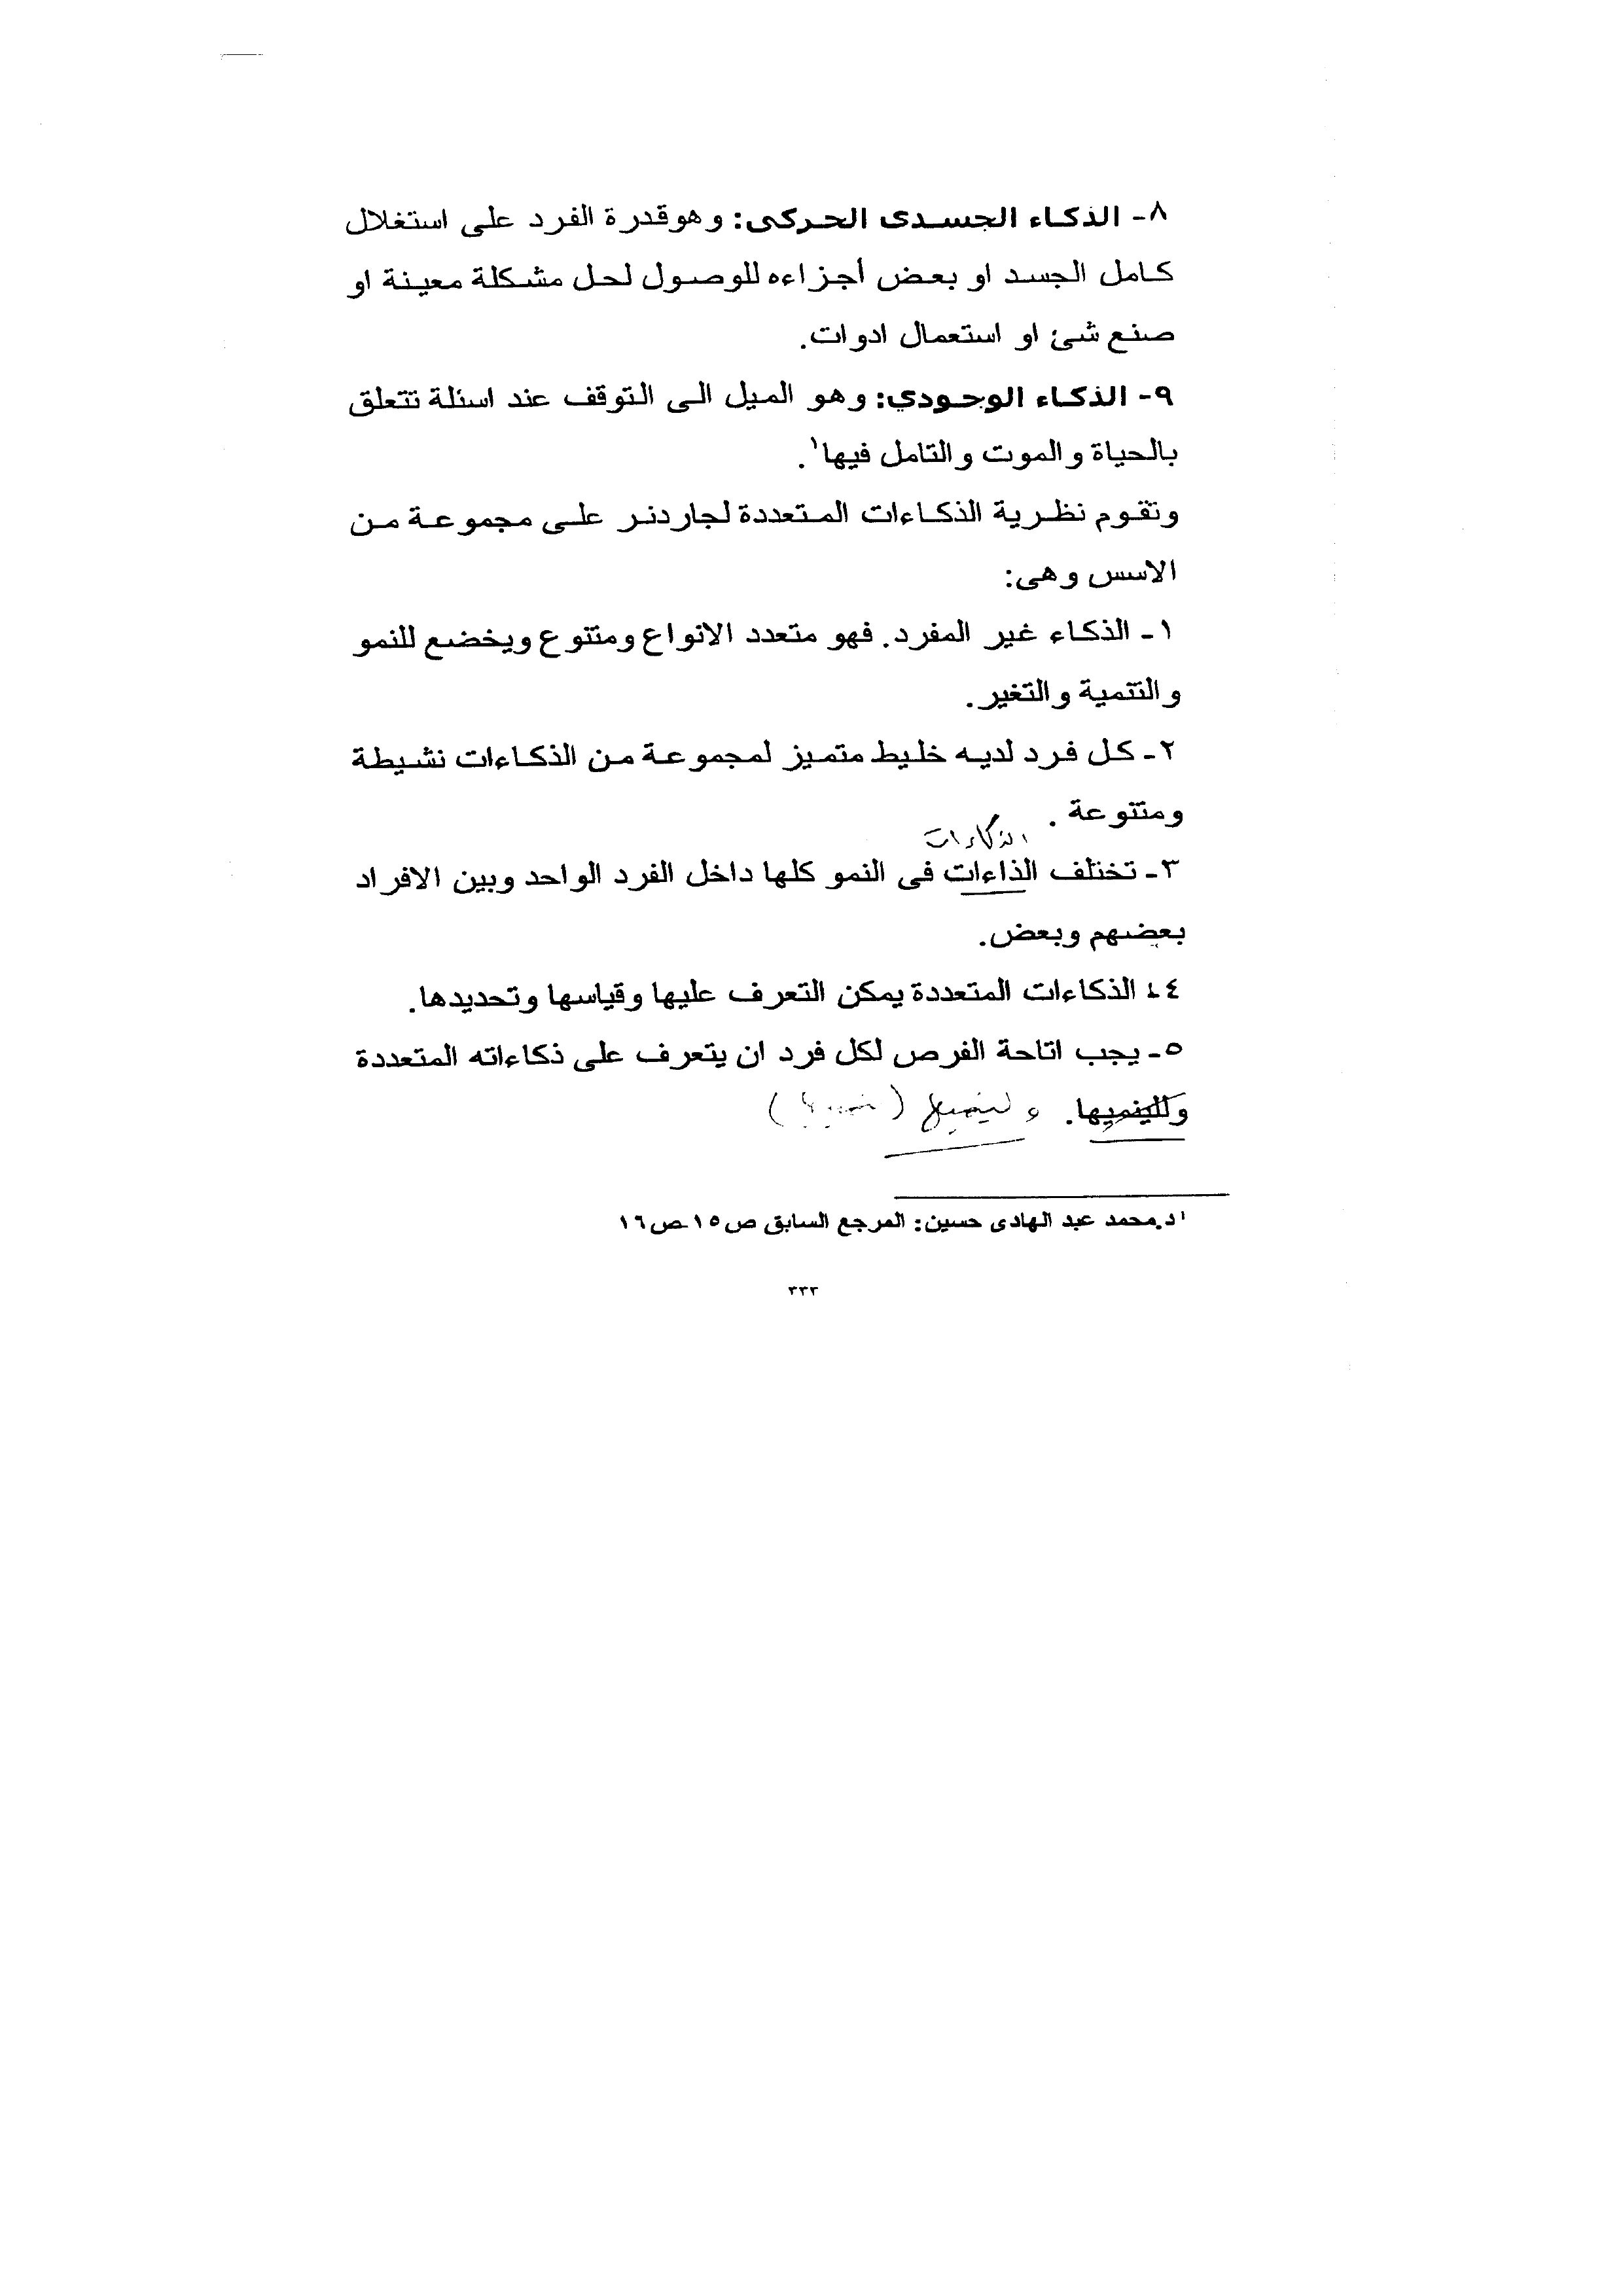 ٨- الذكاء الجسدى الحركى: وهوقدرة الفرد على استغلال
كامل الجسد او بعض أجزاءه للوصول لحل مشكلة معينة او
صنع شئ او استعمال ادوات.
٩- الذكاء الوجودي: وهو الميل الى التوقف عند اسئلة تتعلق
بالحياة والموت والتامل فيها١.
وتقوم نظرية الذكاءات المتعددة لجاردنر على مجموعة من
الاسس وهى:
١- الذكاء غير المفرد. فهو متعدد الانواع ومتنوع ويخضع للنمو
والتنمية والتغير.
٢- كل فرد لديه خليط متميز لمجموعة من الذكاءات نشيطة
ومتنوعة .
الذكاءات
٣- تختلف الذاءات فى النمو كلها داخل الفرد الواحد وبين الافراد
بعضهم وبعض.
٤- الذكاءات المتعددة يمكن التعرف عليها وقياسها وتحديدها.
٥- يجب اتاحة الفرص لكل فرد ان يتعرف على ذكاءاته المتعددة
وللينميها. ولينميها
١ د.محمد عبد الهادى حسين: المرجع السابق ص١٥-ص١٦
٣٣٣